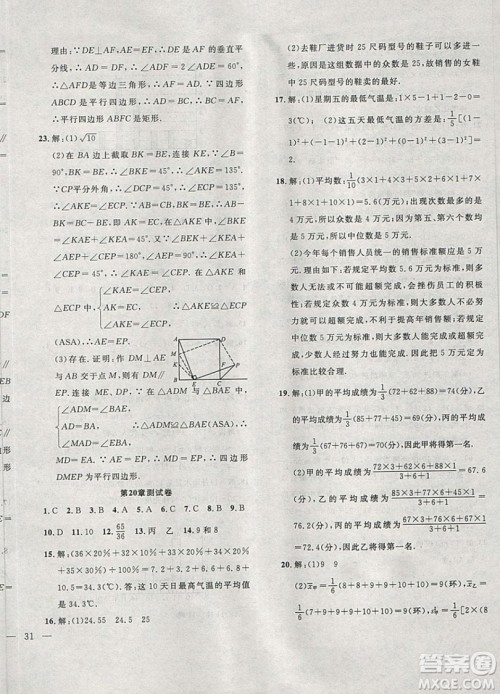 理由:∵DE⊥AF,AE=EF,∴DE是AF的垂直平
分线,∴AD=DF=AF.∴∠ADE=∠FDE=30°,
∴△ADF是等边三角形,∴AD=AF.∵四边形
ABCD是平行四边形,∴AD=BC,∴AF=BC.∴平
行四边形ABFC是矩形.
23.解:(1)√10
(2)在BA边上截取BK=BE,连接KE.∵∠B=
90°,BK=BE,∴∠BKE=45°,∴∠AKE=135°.∵
CP平分外角,∴∠DCP=45°,∴∠ECP=135°,
∴∠AKE=∠ECP.∵AB=CB,BK=BE,∴AB-
BK=BC-BE,即AK=EC.易得∠B+∠KEA+
∠AEP+∠CEP=180°,∵∠AEP=90°,∠BKE=
∠BEK=45°,∴∠KAE=∠CEP.在△AKE和△ECP
中
∠KAE=∠CEP,
AK=EC,
∠AKE=∠ECP,
∴△AKE≌△ECP(ASA),∴AE
=EP.
(3)存在.证明:作DM⊥AE
与AB交于点M,则有:DM∥
EP,连接ME、DP.∵在△ADM与△BAE中,
∠DAM=∠ABE,
AD=BA,
∠ADM=∠EBA,
∴△ADM≌△BAE(ASA),∴
MD=AE.∵AE=EP,∴MD=EP,∴MD∥EP,
∴四边形DMEP为平行四边形.
A D M P B E C
第20章测试卷
1.C 2.B 3.A 4.A 5.D 6.C 7.A 8.B 9.C
10.D 11.10 12.65/36 13.丙 乙 14.9和8
15.解:(36×20%+32×10%+33×20%+34×
30%+35×20%)÷1=7.2+3.2+6.6+10.2+7
=34.3(℃).答:这10天日最高气温的平均值
是34.3℃.
16.解:(1)24.55 24.5 25
31
(2)去鞋厂进货时25尺码型号的鞋子可以多进一
些,原因是这组数据中的众数是25,故销售的女鞋
中25尺码型号的鞋卖的最好.
17.解:(1)星期五的最低气温是:1×5-1+1-2-0-2
=3(℃).(2)这五天最低气温的方差是:1/5[(1-
1)²+(-1-1)²+(2-1)²+(0-1)²+(3-1)²]
=2.
18.解:(1)平均数:1/10(3×1+4×3+5×2+6×1+7
×1+8×1+10×1)=5.6(万元);出现次数最多的
是4万元,所以众数是4万元.因为第五、第六个
数均是5万元,所以中位数是5万元.
(2)今年每个销售人员统一的销售标准额应是5万
元.理由如下:若规定平均数5.6万元为标准,则多
数人无法或不可能超额完成,会挫伤员工的积极
性;若规定众数4万元为标准,则大多数人不必努
力就可以超额完成,不利于提高年销售额;若规定
中位数5万元为标准,则大多数人能完成或超额完
成,少数人经过努力也能完成.
19.解:(1)甲的平均成绩为1/3(72+62+88)=74(分),乙
的平均成绩为1/3(85+77+45)=69(分),丙的平均成
绩为1/3(67+76+67)=70(分).因此甲将得第一.
(2)甲的平均成绩为(72×3+62×2+88×1)/(3+2+1)=
67.6(分),乙的平均成绩为(85×3+77×2+45×1)/(3+2+1)
=75.7(分),丙的平均成绩为(67×3+76×2+67×1)/(3+2+1)
=70(分).因此乙将得第一.
20.解:(1)9 9
(2)(10+8+9+8+10+9)÷6=9(环),
(10+7+10+10+9+8)÷6=9(环)
答案圈
MXQE.COM